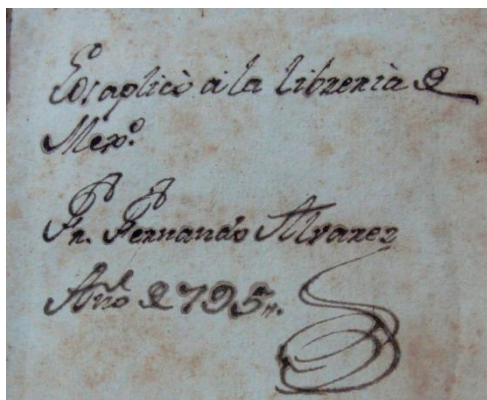 aplicò a la libreria de
Mex.º
Fr. Fernando Alvarez
Año de 795